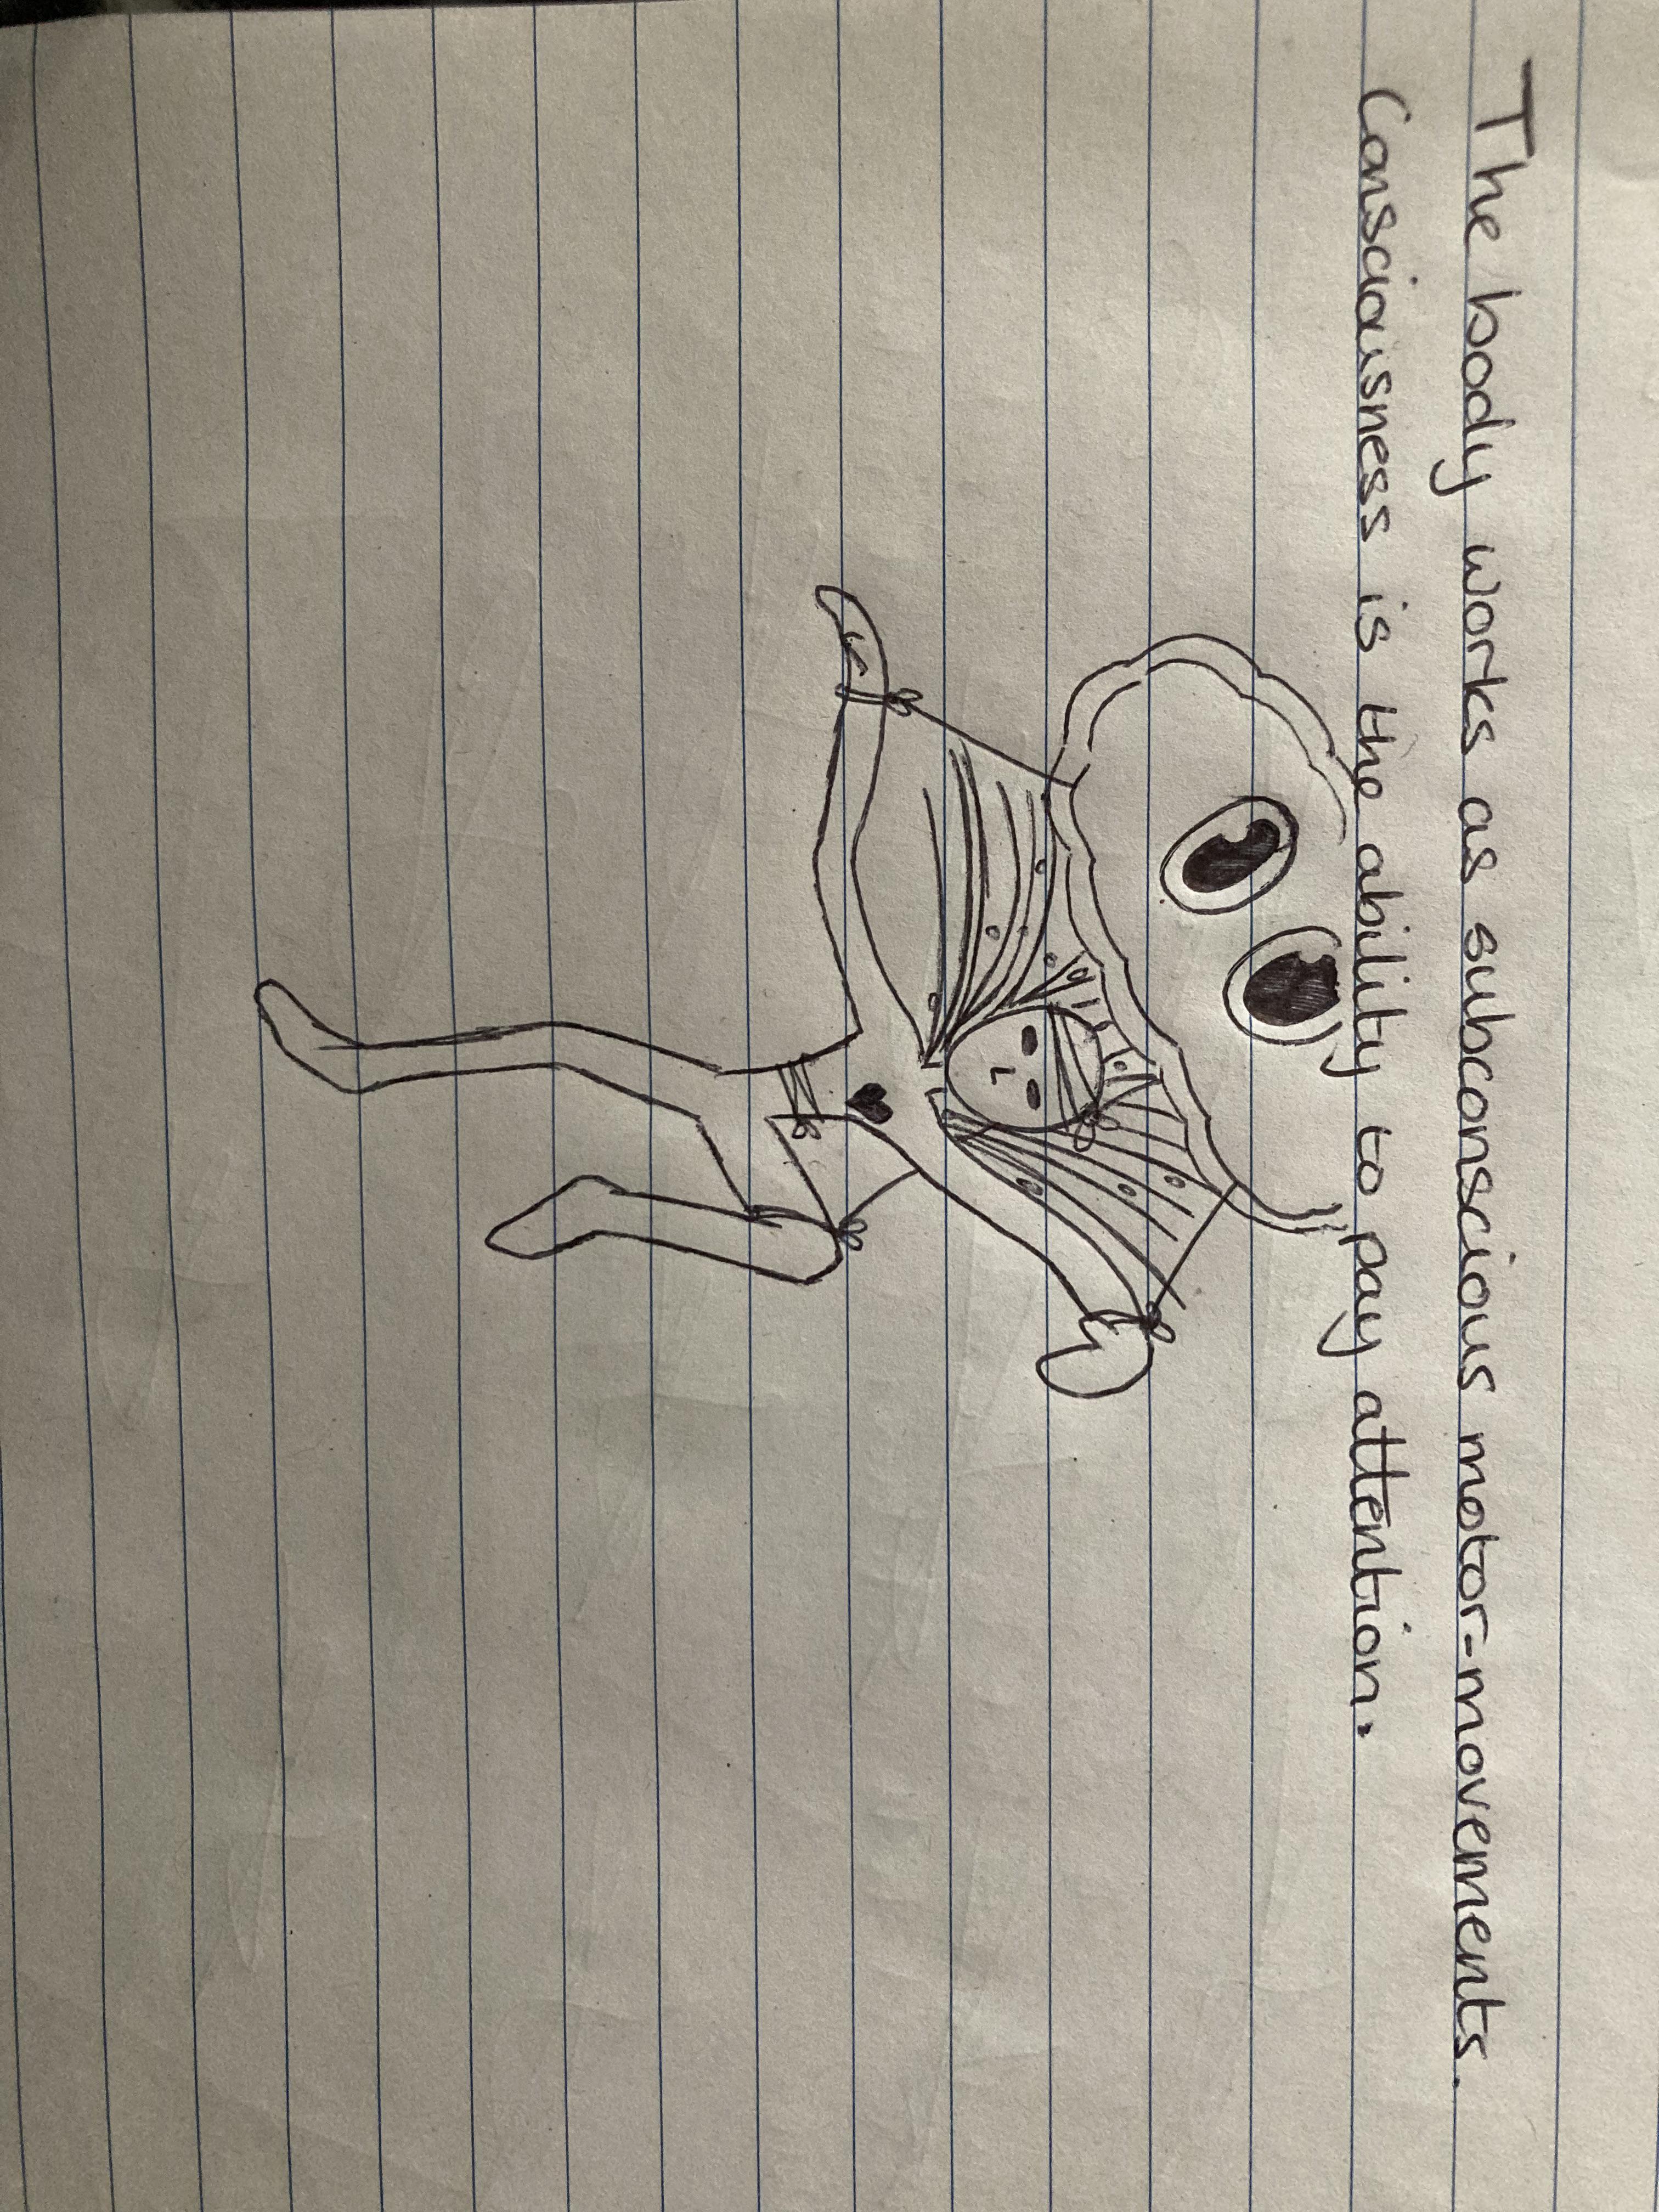 The body works as subconscious motor-movements.
Consciousness is the ability to pay attention.